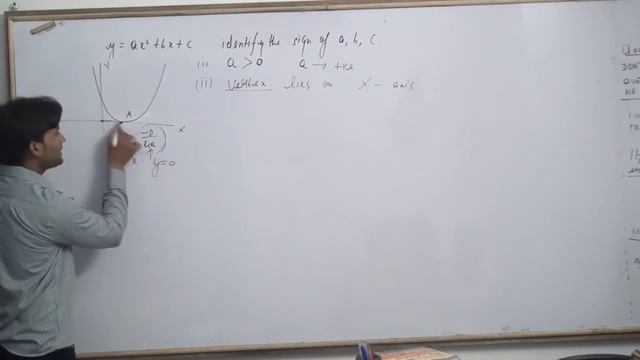 y = ax² + bx + c identify the sign of a, b, c
(i) a > 0 a → +ve
(ii) Vertex lies on X - axis
y
A
x
-D
4a
x y=0
DON'T
QUE
NO